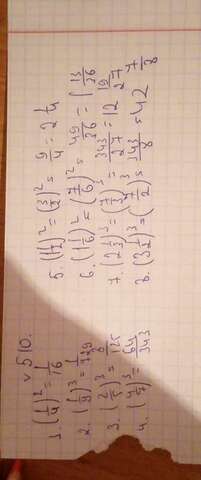 № 510.
1. (1/4)² = 1/16
2. (1/9)³ = 1/729
3. (2/5)³ = 8/125
4. (4/7)³ = 64/343
5. (1 1/2)² = (3/2)² = 9/4 = 2 1/4
6. (1 1/6)² = (7/6)² = 49/36 = 1 13/36
7. (2 1/3)³ = (7/3)³ = 343/27 = 12 19/27
8. (3 1/2)³ = (7/2)³ = 343/8 = 42 7/8